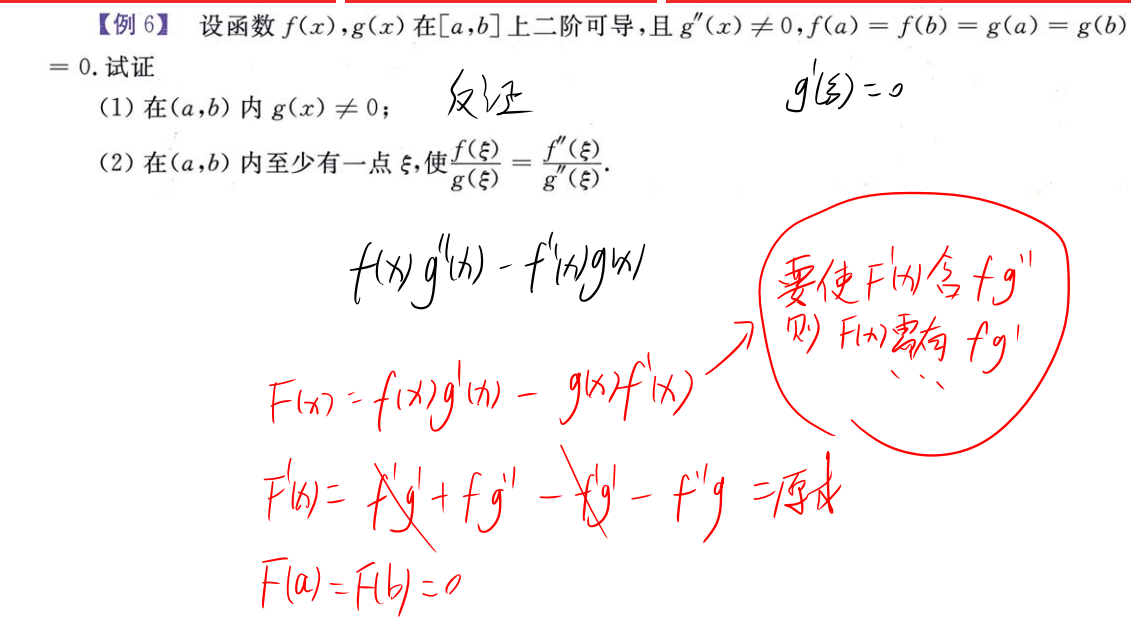 【例6】 设函数 f(x),g(x) 在[a,b]上二阶可导,且 g″(x) ≠ 0,f(a) = f(b) = g(a) = g(b)
= 0.试证
(1) 在(a,b) 内 g(x) ≠ 0;
反证
g'(ξ) = 0
(2) 在(a,b) 内至少有一点 ξ,使 f(ξ)/g(ξ) = f″(ξ)/g″(ξ).
f(x)g''(x) - f'(x)g(x)
要使F'(x)含 fg''
则 F(x)需有 fg'
...
F(x) = f(x)g'(x) - g(x)f'(x)
F'(x) = f'g' + fg'' - f'g' - f''g = 原求
F(a) = F(b) = 0